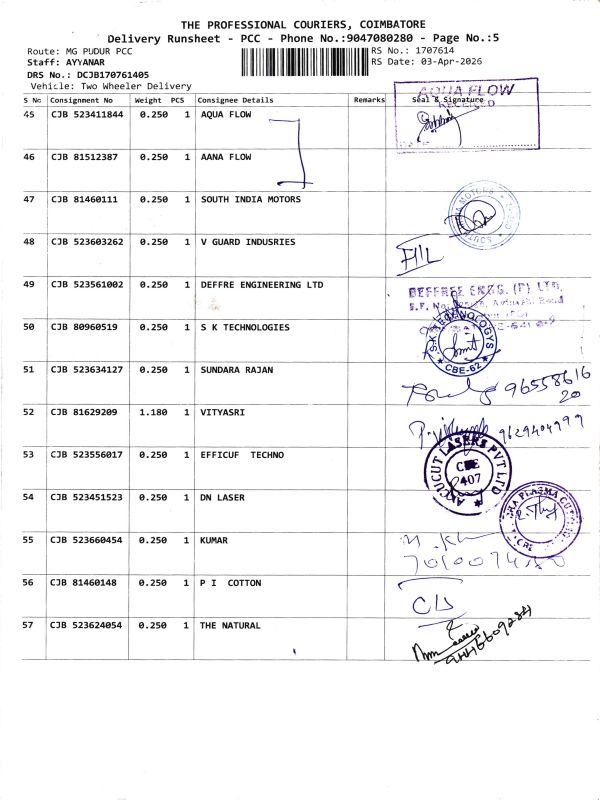 THE PROFESSIONAL COURIERS, COIMBATORE
Delivery Runsheet - PCC - Phone No.:9047080280 - Page No.:5
Route: MG PUDUR PCC RS No.: 1707614
Staff: AYYANAR RS Date: 03-Apr-2026
DRS No.: DCJB170761405
Vehicle: Two Wheeler Delivery
S No Consignment No Weight PCS Consignee Details Remarks Seal & Signature
AQUA FLOW
RECEIVED
45 CJB 523411844 0.250 1 AQUA FLOW
46 CJB 81512387 0.250 1 AANA FLOW
47 CJB 81460111 0.250 1 SOUTH INDIA MOTORS
48 CJB 523603262 0.250 1 V GUARD INDUSRIES
49 CJB 523561002 0.250 1 DEFFRE ENGINEERING LTD
DEFFREE ENGG. (P) LTD.
50 CJB 80960519 0.250 1 S K TECHNOLOGIES
S.K. TECHNOLOGYS
CBE-62
51 CJB 523634127 0.250 1 SUNDARA RAJAN
96558616
20
52 CJB 81629209 1.180 1 VITYASRI 9629404999
53 CJB 523556017 0.250 1 EFFICUF TECHNO
ACCUCUT LASERS PVT LTD
CBE
407
54 CJB 523451523 0.250 1 DN LASER
PLASMA
CBE
55 CJB 523660454 0.250 1 KUMAR
56 CJB 81460148 0.250 1 P I COTTON
57 CJB 523624054 0.250 1 THE NATURAL